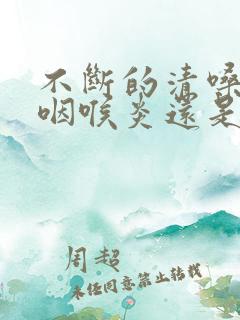 不斷的清嗓
咽喉炎還是
周超
未經同意禁止轉載